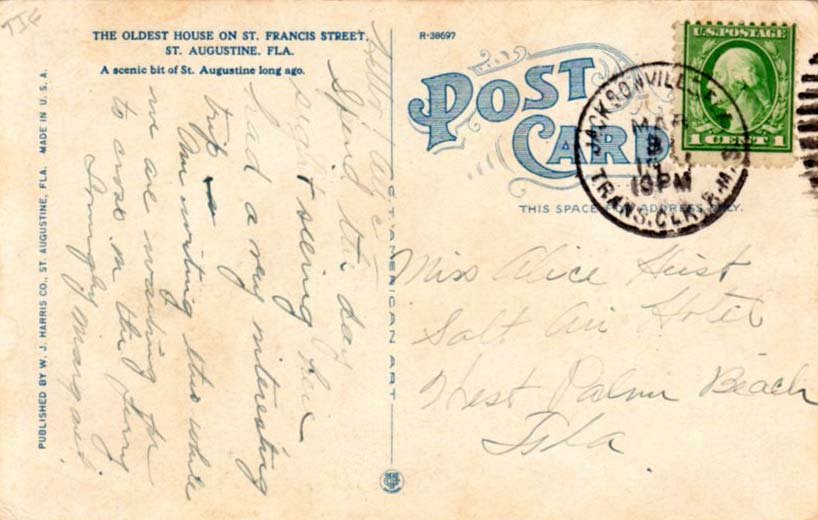 TJF
THE OLDEST HOUSE ON ST. FRANCIS STREET,
ST. AUGUSTINE, FLA.
A scenic bit of St. Augustine long ago.
R-38697
POST
CARD
THIS SPACE FOR ADDRESS ONLY.
U.S. POSTAGE
1 CENT 1
JACKSONVILLE
MAR
10PM
TRANS. CLK. R.M.S.
Hello!
Spend the day
sight seeing here
had a very interesting
trip
Am writing this while
we are waiting for
to cross on the ferry
Lovingly Margaret
PUBLISHED BY W. J. HARRIS CO., ST. AUGUSTINE, FLA. MADE IN U. S. A.
C. T. AMERICAN ART
Miss Alice Heist
Salt Air Hotel
West Palm Beach
Fla